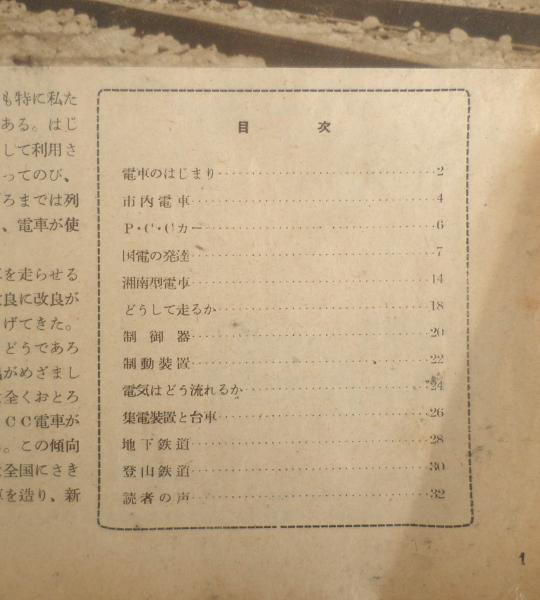 も特に私た
ある。はじ
して利用さ
ってのび、
ろまでは列
、電車が使
を走らせる
良に改良が
げてきた。
どうであろ
がめざまし
全くおとろ
CC電車が
。この傾向
全国にさき
を造り、新
目次
電車のはじまり 2
市内電車 4
P・C・Cカー 6
国電の発達 7
湘南型電車 14
どうして走るか 18
制御器 20
制動装置 22
電気はどう流れるか 24
集電装置と台車 26
地下鉄道 28
登山鉄道 30
読者の声 32
1